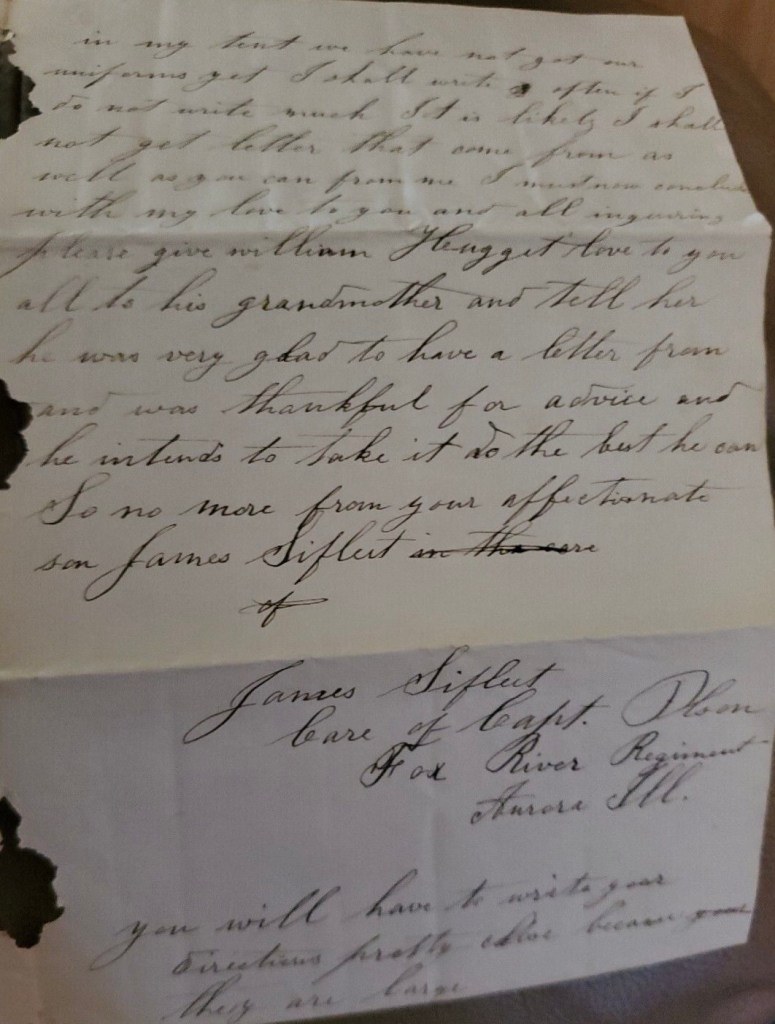 in my tent we have not got our
uniforms yet I shall write often if I
do not write much It is likely I shall
not get letter that come from as
well as you can from me I must now conclude
with my love to you and all inquiring
please give william Hugget love to you
all to his grandmother and tell her
he was very glad to have a letter from
and was thankful for advice and
he intends to take it do the best he can
So no more from your affectionate
son James Sifleet in the care
of
James Sifleet
Care of Capt. Olson
Fox River Regiment
Aurora Ill.
you will have to write your
directions pretty close because
they are large